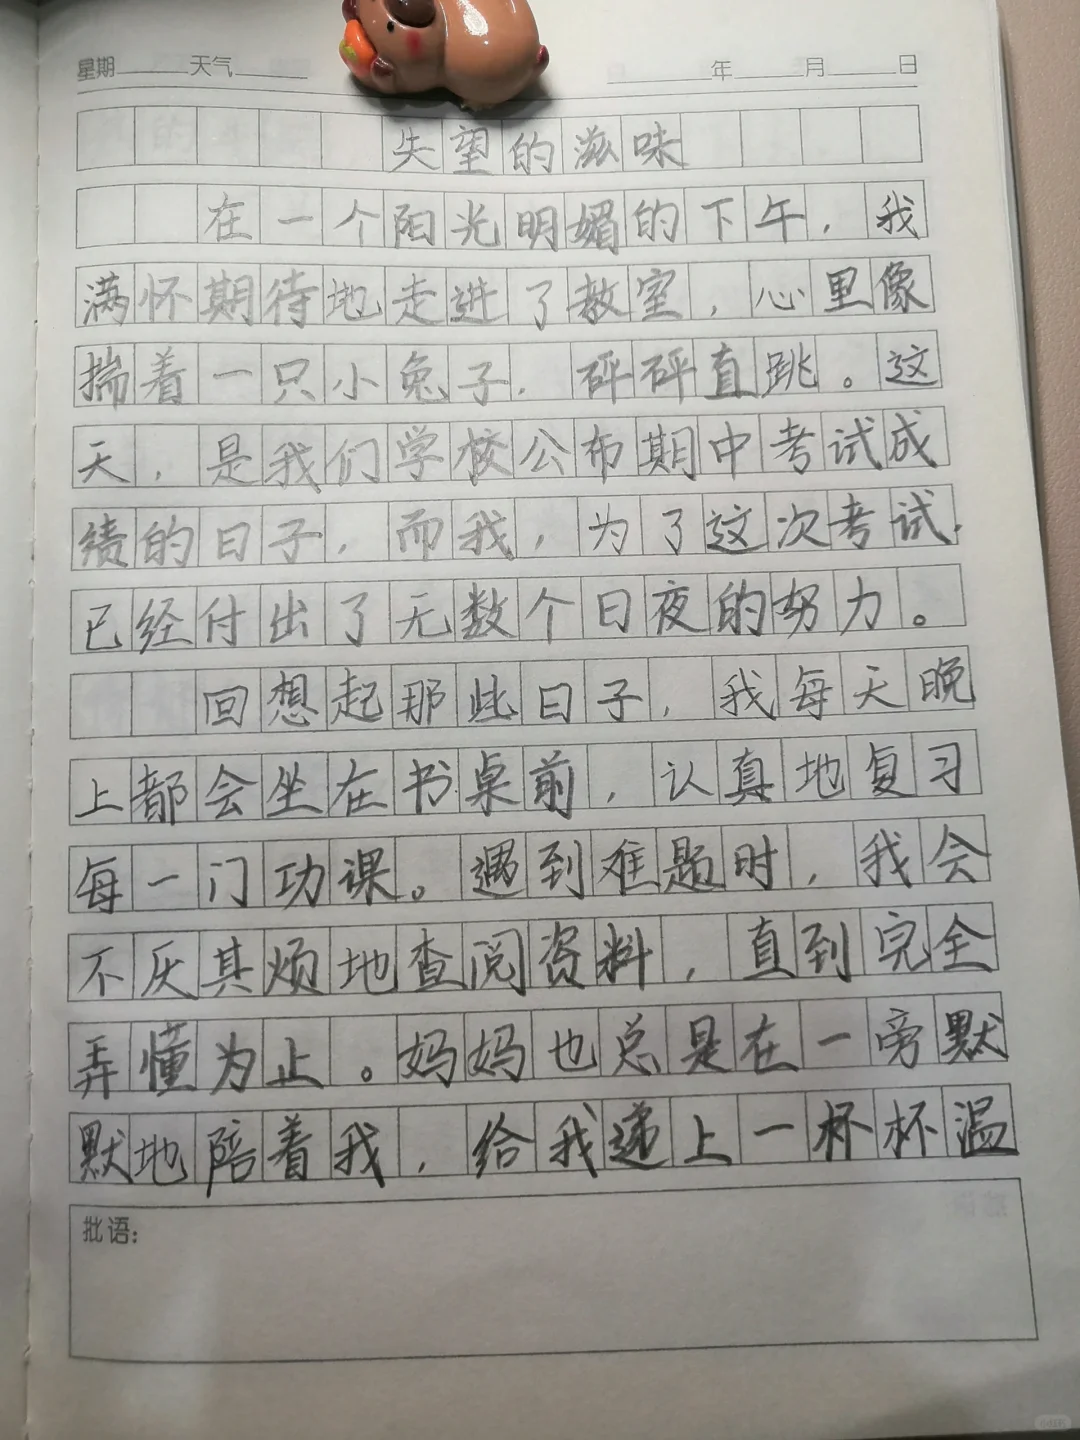 星期 天气 年 月 日
失望的滋味
在一个阳光明媚的下午，我
满怀期待地走进了教室，心里像
揣着一只小兔子，砰砰直跳。这
天，是我们学校公布期中考试成
绩的日子，而我，为了这次考试，
已经付出了无数个日夜的努力。
回想起那些日子，我每天晚
上都会坐在书桌前，认真地复习
每一门功课。遇到难题时，我会
不厌其烦地查阅资料，直到完全
弄懂为止。妈妈也总是在一旁默
默地陪着我，给我递上一杯杯温
批语：